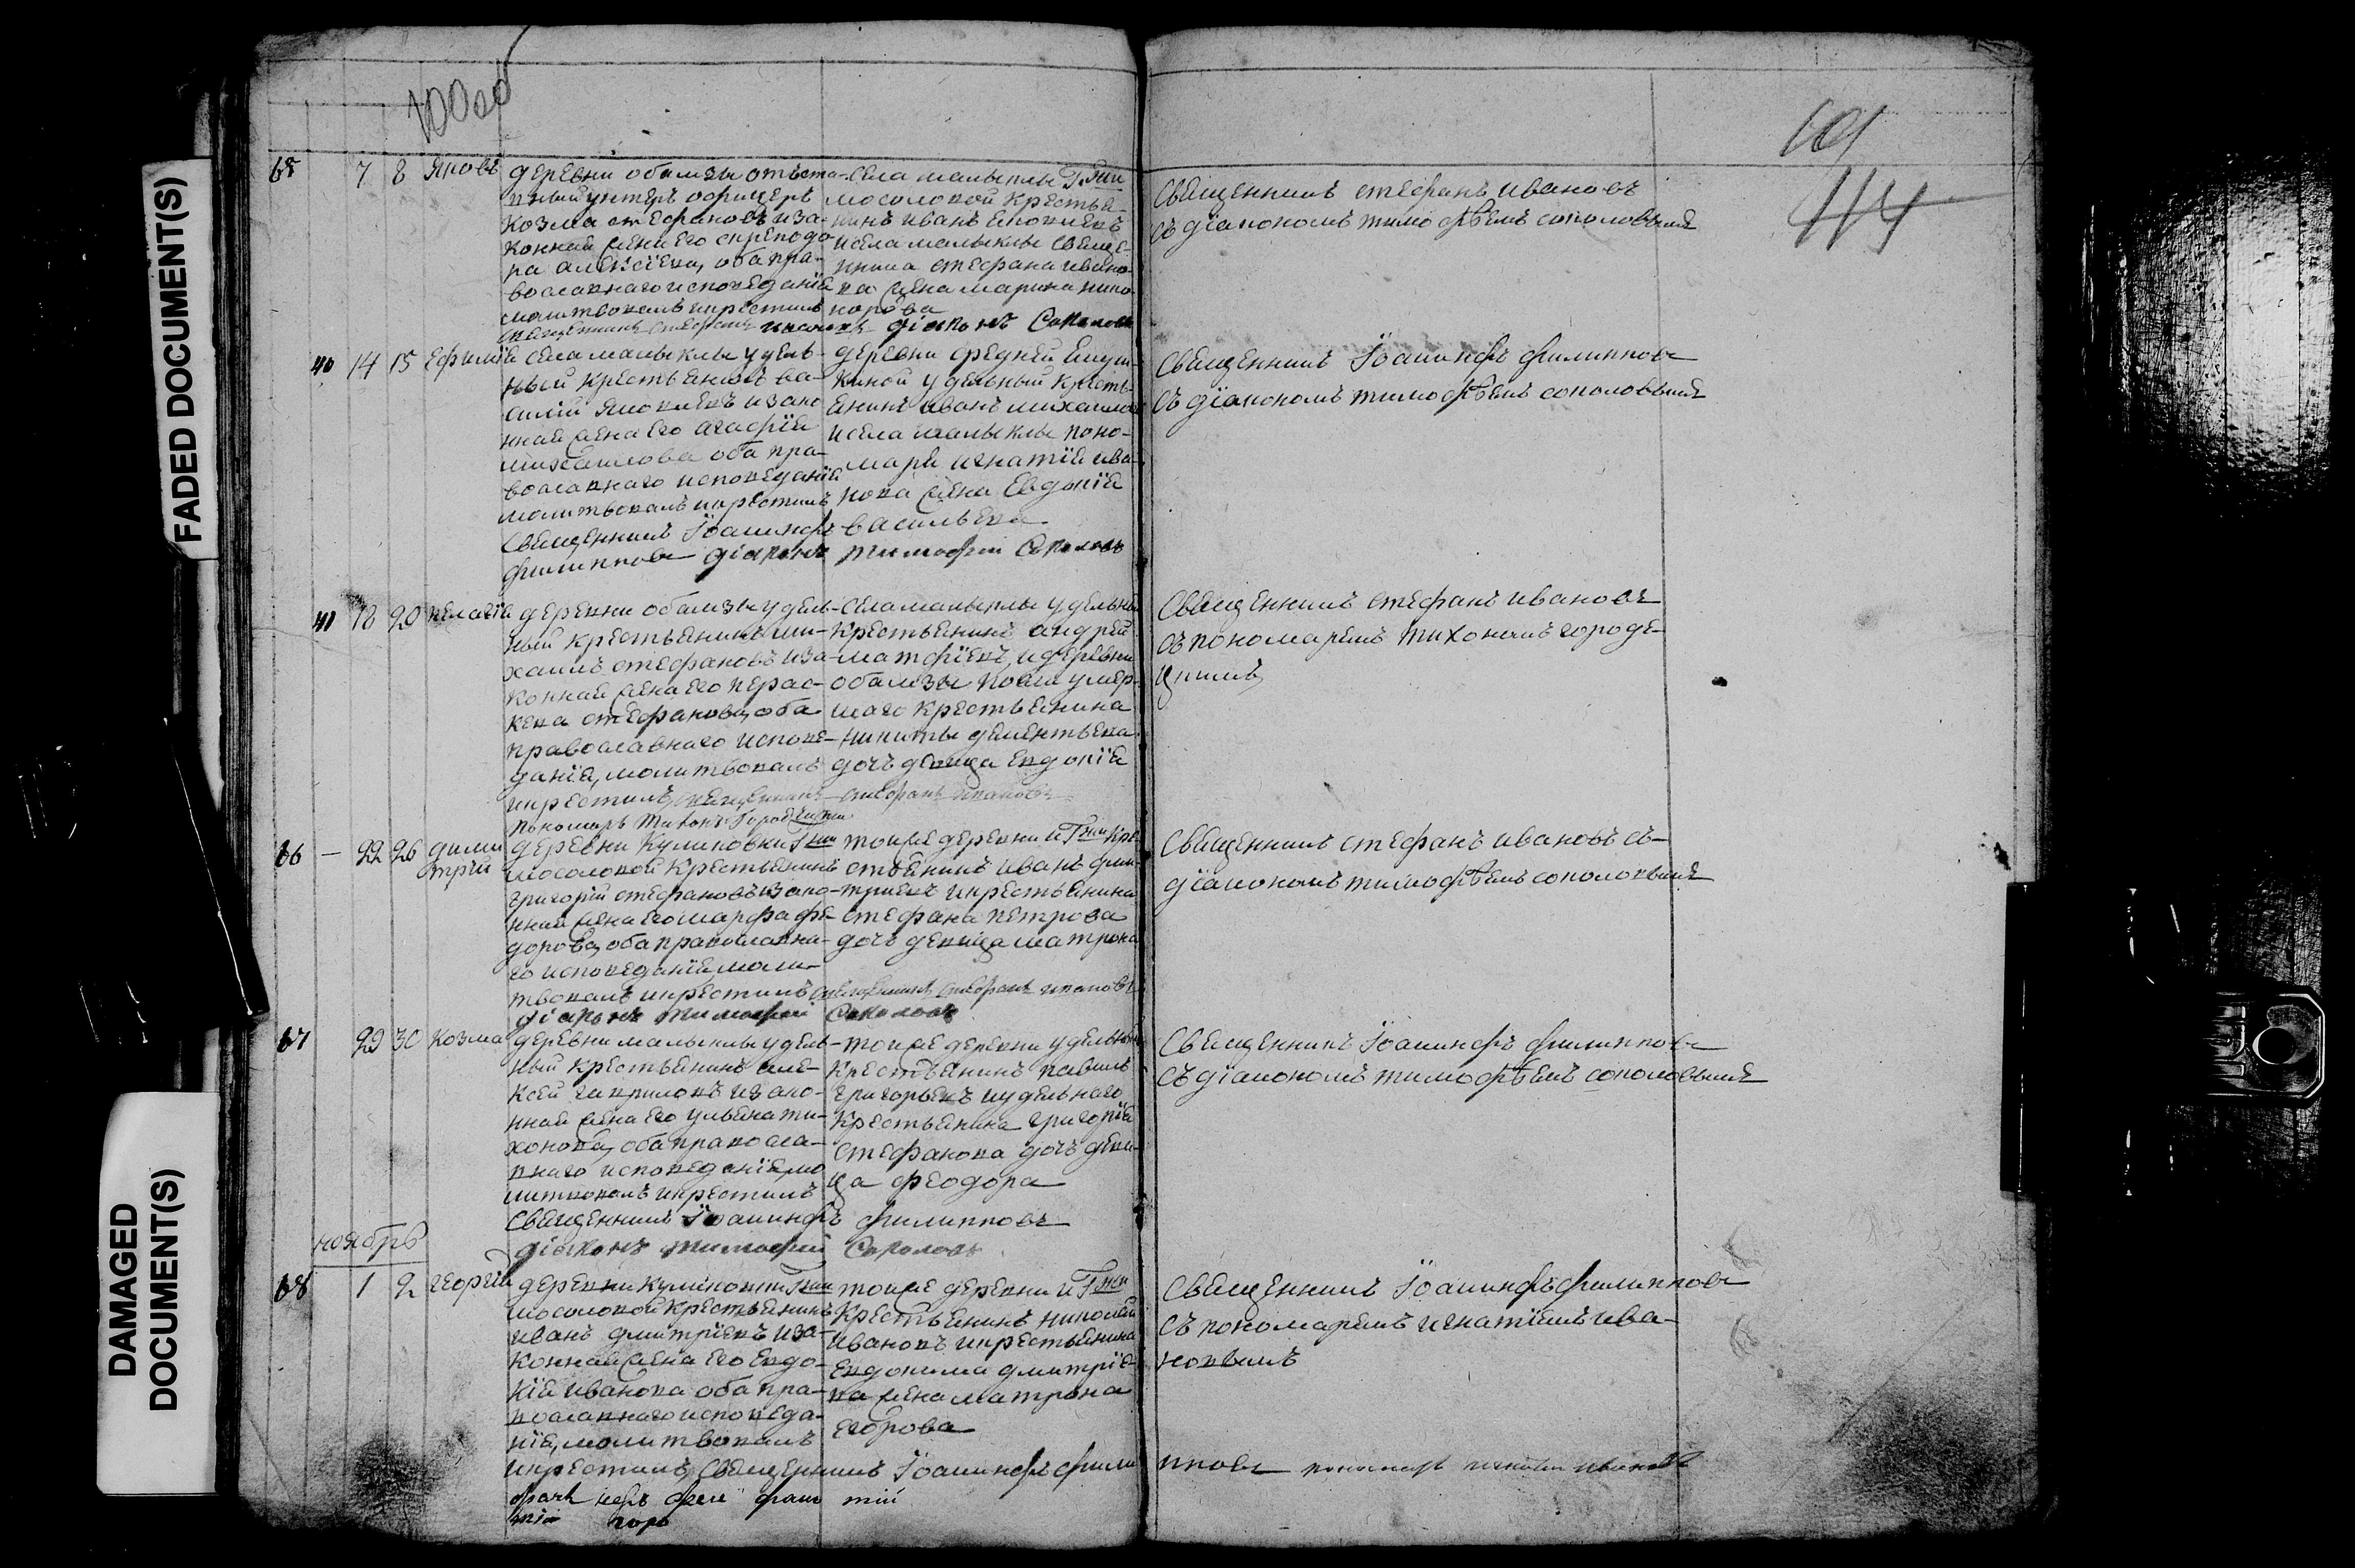 FADED DOCUMENT(S)
DAMAGED
DOCUMENT(S)
101
114
65 7 8 Яковъ
деревни обамзы отъста-
вный унтеръ офицеръ
Козма стефановъ иза-
конная жена его
ра алексѣева, оба пра-
вославнаго исповеданія
молитвовалъ икрестилъ
священникъ стефанъ ивановъ діаконъ Соколовъ
села малыклы Г.жи
мосоловой Крестья-
нинъ иванъ яковлевъ
исела малыклы свяще-
нника стефана ивано-
ва жена марина ника-
норова
Священникъ стефанъ ивановъ
съ діакономъ тимофѣемъ соколовымъ
40 14 15 Ефимія
села малыклы удель-
ный крестьянинъ ва-
силій яковлевъ изако
нная жена его агафія
михайлова оба пра-
вославнаго исповеданія
молитвовалъ икрестилъ
Священникъ Іоакинфъ
филипповъ діаконъ тимофей Соколовъ
деревни средней Якуш-
киной удельный кресть-
янинъ иванъ михайловъ
исела малыклы поно-
маря игнатія ива-
нова жена Евдокія
васильева
Священникъ Іоакинфъ филипповъ
съ діакономъ тимофѣемъ соколовымъ
41 18 20 пелагія
деревни обамзы удель-
ный крестьянинъ ми-
хаилъ стефановъ иза-
конная жена его парас-
кева стефанова, оба
православнаго испове-
данія, молитвовалъ
икрестилъ, священникъ стефанъ ивановъ
пономарь Тихонъ Городецкій
села малыклы удельный
крестьянинъ андрей
матфѣевъ, идеревни
обамзы умер-
шаго крестьянина
никиты дементьева
дочь девица евдокія
Священникъ стефанъ ивановъ
съ пономаремъ тихономъ городе-
цкимъ
66 — 22 26 дими
трій
деревни Куликовки Г.жи
мосоловой крестьянинъ
григорій стефановъ изако-
нная жена его марфа фе-
дорова, оба православна-
го исповеданія моли-
твовалъ икрестилъ священникъ стефанъ ивановъ
діаконъ тимофей Соколовъ
тояже деревни и Г.жи кре-
стьянинъ иванъ дми-
тріевъ икрестьянина
стефана петрова
дочь девица матрона
Священникъ стефанъ ивановъ съ-
діакономъ тимофѣемъ соколовымъ
67 29 30 Козма
деревни малыклы удель-
ный крестьянинъ але-
ксей гавриловъ изако-
нная жена его ульяна ти-
хонова, оба правосла-
внаго исповеданія, мо
литвовалъ икрестилъ
Священникъ Іоакинфъ филипповъ
діаконъ тимофей Соколовъ
тояже деревни удельный
Крестьянинъ павелъ
григорьевъ иудельнаго
Крестьянина григорія
стефанова дочь деви-
ца феодора
Священникъ Іоакинфъ филипповъ
съ діакономъ тимофѣемъ соколовымъ
ноябрь
68 1 2 георгій
деревни куликовки Г.жи
мосоловой крестьянинъ
иванъ дмитріевъ иза-
конная жена его евдо-
кія иванова оба пра-
вославнаго исповеда-
нія, молитвовалъ
икрестилъ, Священникъ Іоакинфъ филипповъ пономарь игнатій ивановъ
тояже деревни и Г.жи
Крестьянинъ николай
ивановъ икрестьянина
евдокима дмитріе-
ва жена матрона
егорова
Священникъ Іоакинфъ филипповъ
съ пономаремъ игнатіемъ ива-
новымъ